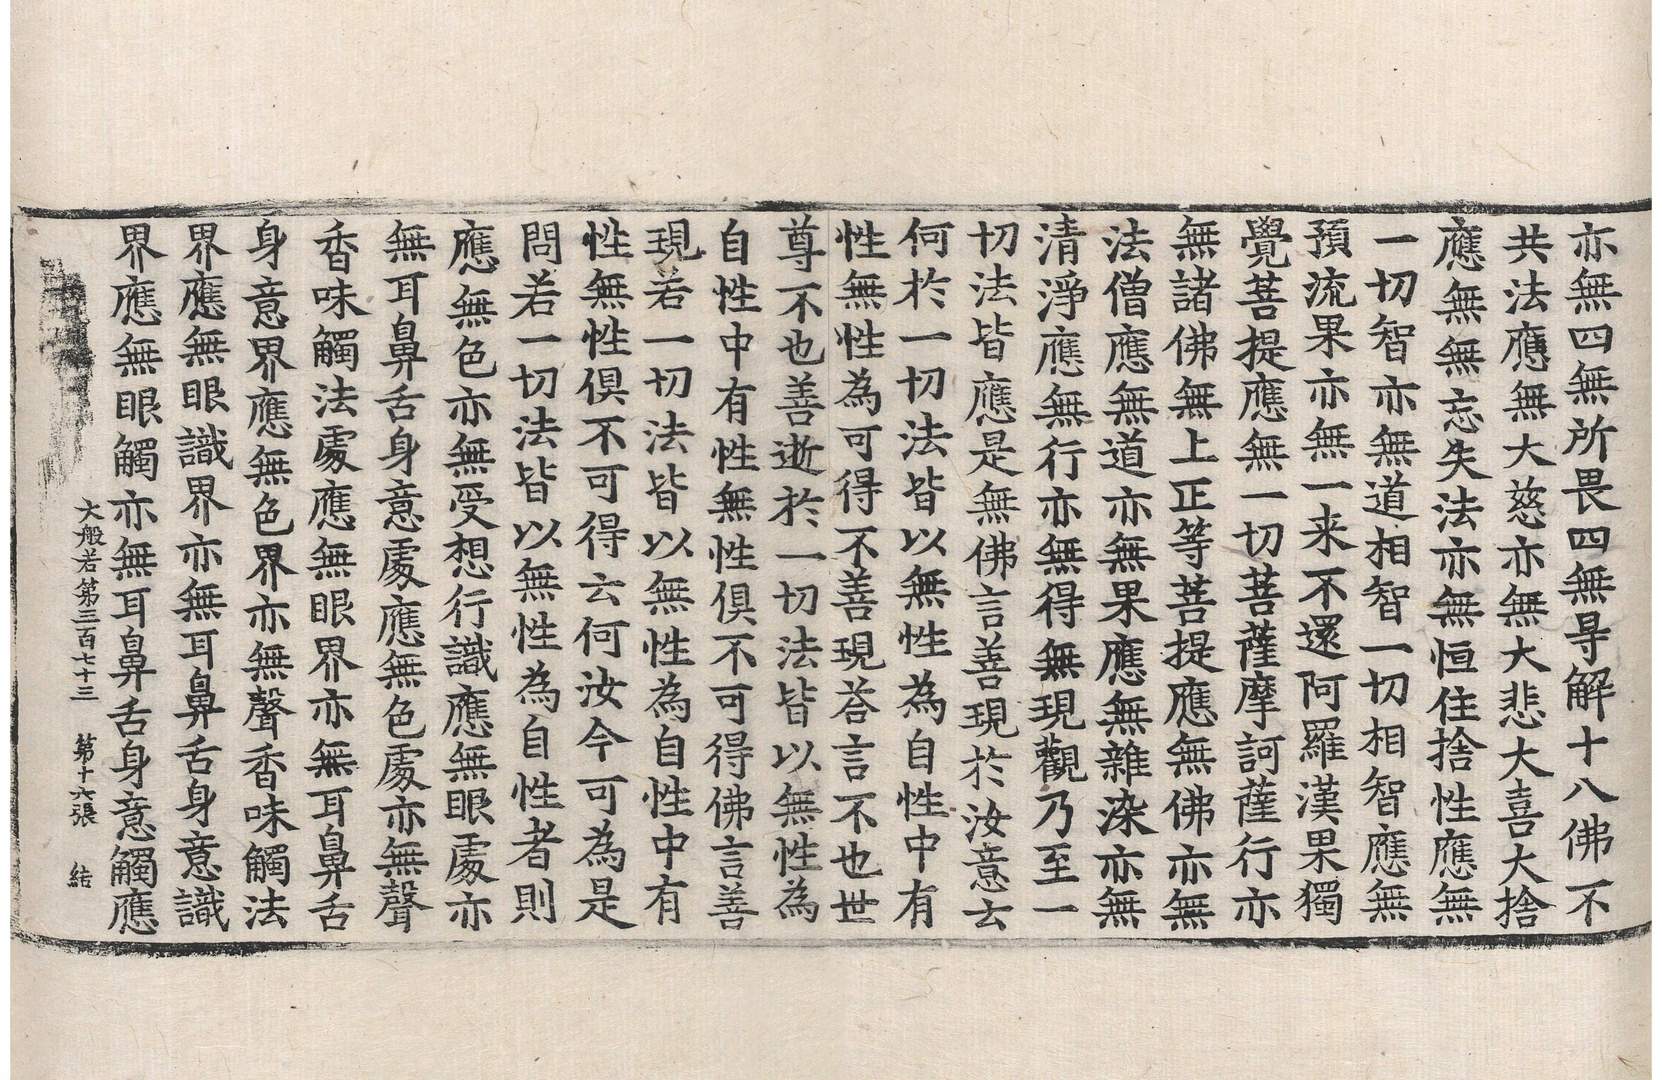 亦無四無所畏四無㝵解十八佛不
共法應無大慈亦無大悲大喜大捨
應無無忘失法亦無恒住捨性應無
一切智亦無道相智一切相智應無
預流果亦無一来不還阿羅漢果獨
覺菩提應無一切菩薩摩訶薩行亦
無諸佛無上正等菩提應無佛亦無
法僧應無道亦無果應無雜染亦無
清淨應無行亦無得無現觀乃至一
切法皆應是無佛言善現於汝意云
何於一切法皆以無性為自性中有
性無性為可得不善現荅言不也世
尊不也善逝於一切法皆以無性為
自性中有性無性俱不可得佛言善
現若一切法皆以無性為自性中有
性無性俱不可得云何汝今可為是
問若一切法皆以無性為自性者則
應無色亦無受想行識應無眼處亦
無耳鼻舌身意處應無色處亦無聲
香味觸法處應無眼界亦無耳鼻舌
身意界應無色界亦無聲香味觸法
界應無眼識界亦無耳鼻舌身意識
界應無眼觸亦無耳鼻舌身意觸應
大般若第三百七十三 第十六張 結